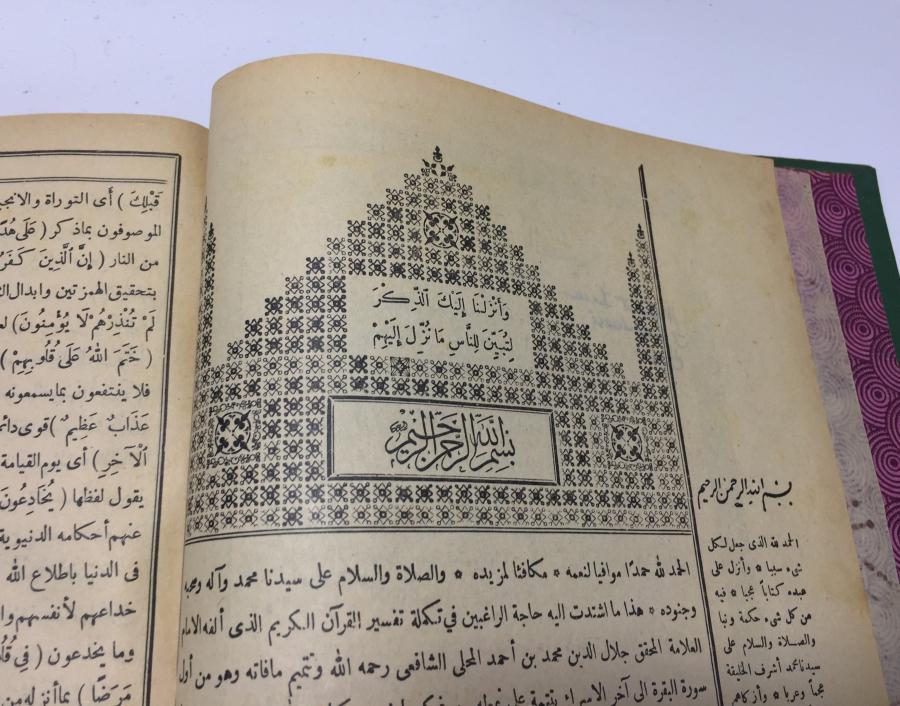 وَأَنْزَلْنَا إِلَيْكَ الذِّكْرَ
لِتُبَيِّنَ لِلنَّاسِ مَا نُزِّلَ إِلَيْهِمْ
بسم الله الرحمن الرحيم
الحمد لله حمدًا موافيا لنعمه * مكافئا لمزيده * والصلاة والسلام على سيدنا محمد وآله وصحبه
وجنوده * هذا ما اشتدت اليه حاجة الراغبين في تكملة تفسير القرآن الكريم الذى ألفه الامام
العلامة المحقق جلال الدين محمد بن أحمد المحلى الشافعى رحمه الله وتتميم مافاته وهو من أول
سورة البقرة الى آخر الاسراء بتتمة على
بسم الله الرحمن الرحيم
الحمد لله الذى جعل لكل
شىء سببا * وأنزل على
عبده كتاباً عجبا * فيه
من كل شىء حكمة ونبا
والصلاة والسلام على
سيدنا محمد أشرف الخليقة
عجماً وعربا * وأزكاهم
قَبْلِكَ ) أى التوراة والانجيل
الموصوفون بماذكر ( عَلَى هُدًى
من النار ( إِنَّ الَّذِينَ كَفَرُوا
بتحقيق الهمزتين وابدال
لَمْ تُنْذِرْهُمْ لَا يُؤْمِنُونَ )
( خَتَمَ اللهُ عَلَى قُلُوبِهِمْ )
فلا ينتفعون بمايسمعونه
عَذَابٌ عَظِيمٌ ) قوى دائم
الْآخِرِ ) أى يوم القيامة
يقول لفظها ( يُخَادِعُونَ
عنهم أحكامه الدنيوية
فى الدنيا باطلاع الله
خداعهم لأنفسهم
وما يخدعون ( فِي
مَرَضًا ) بما أنزله من